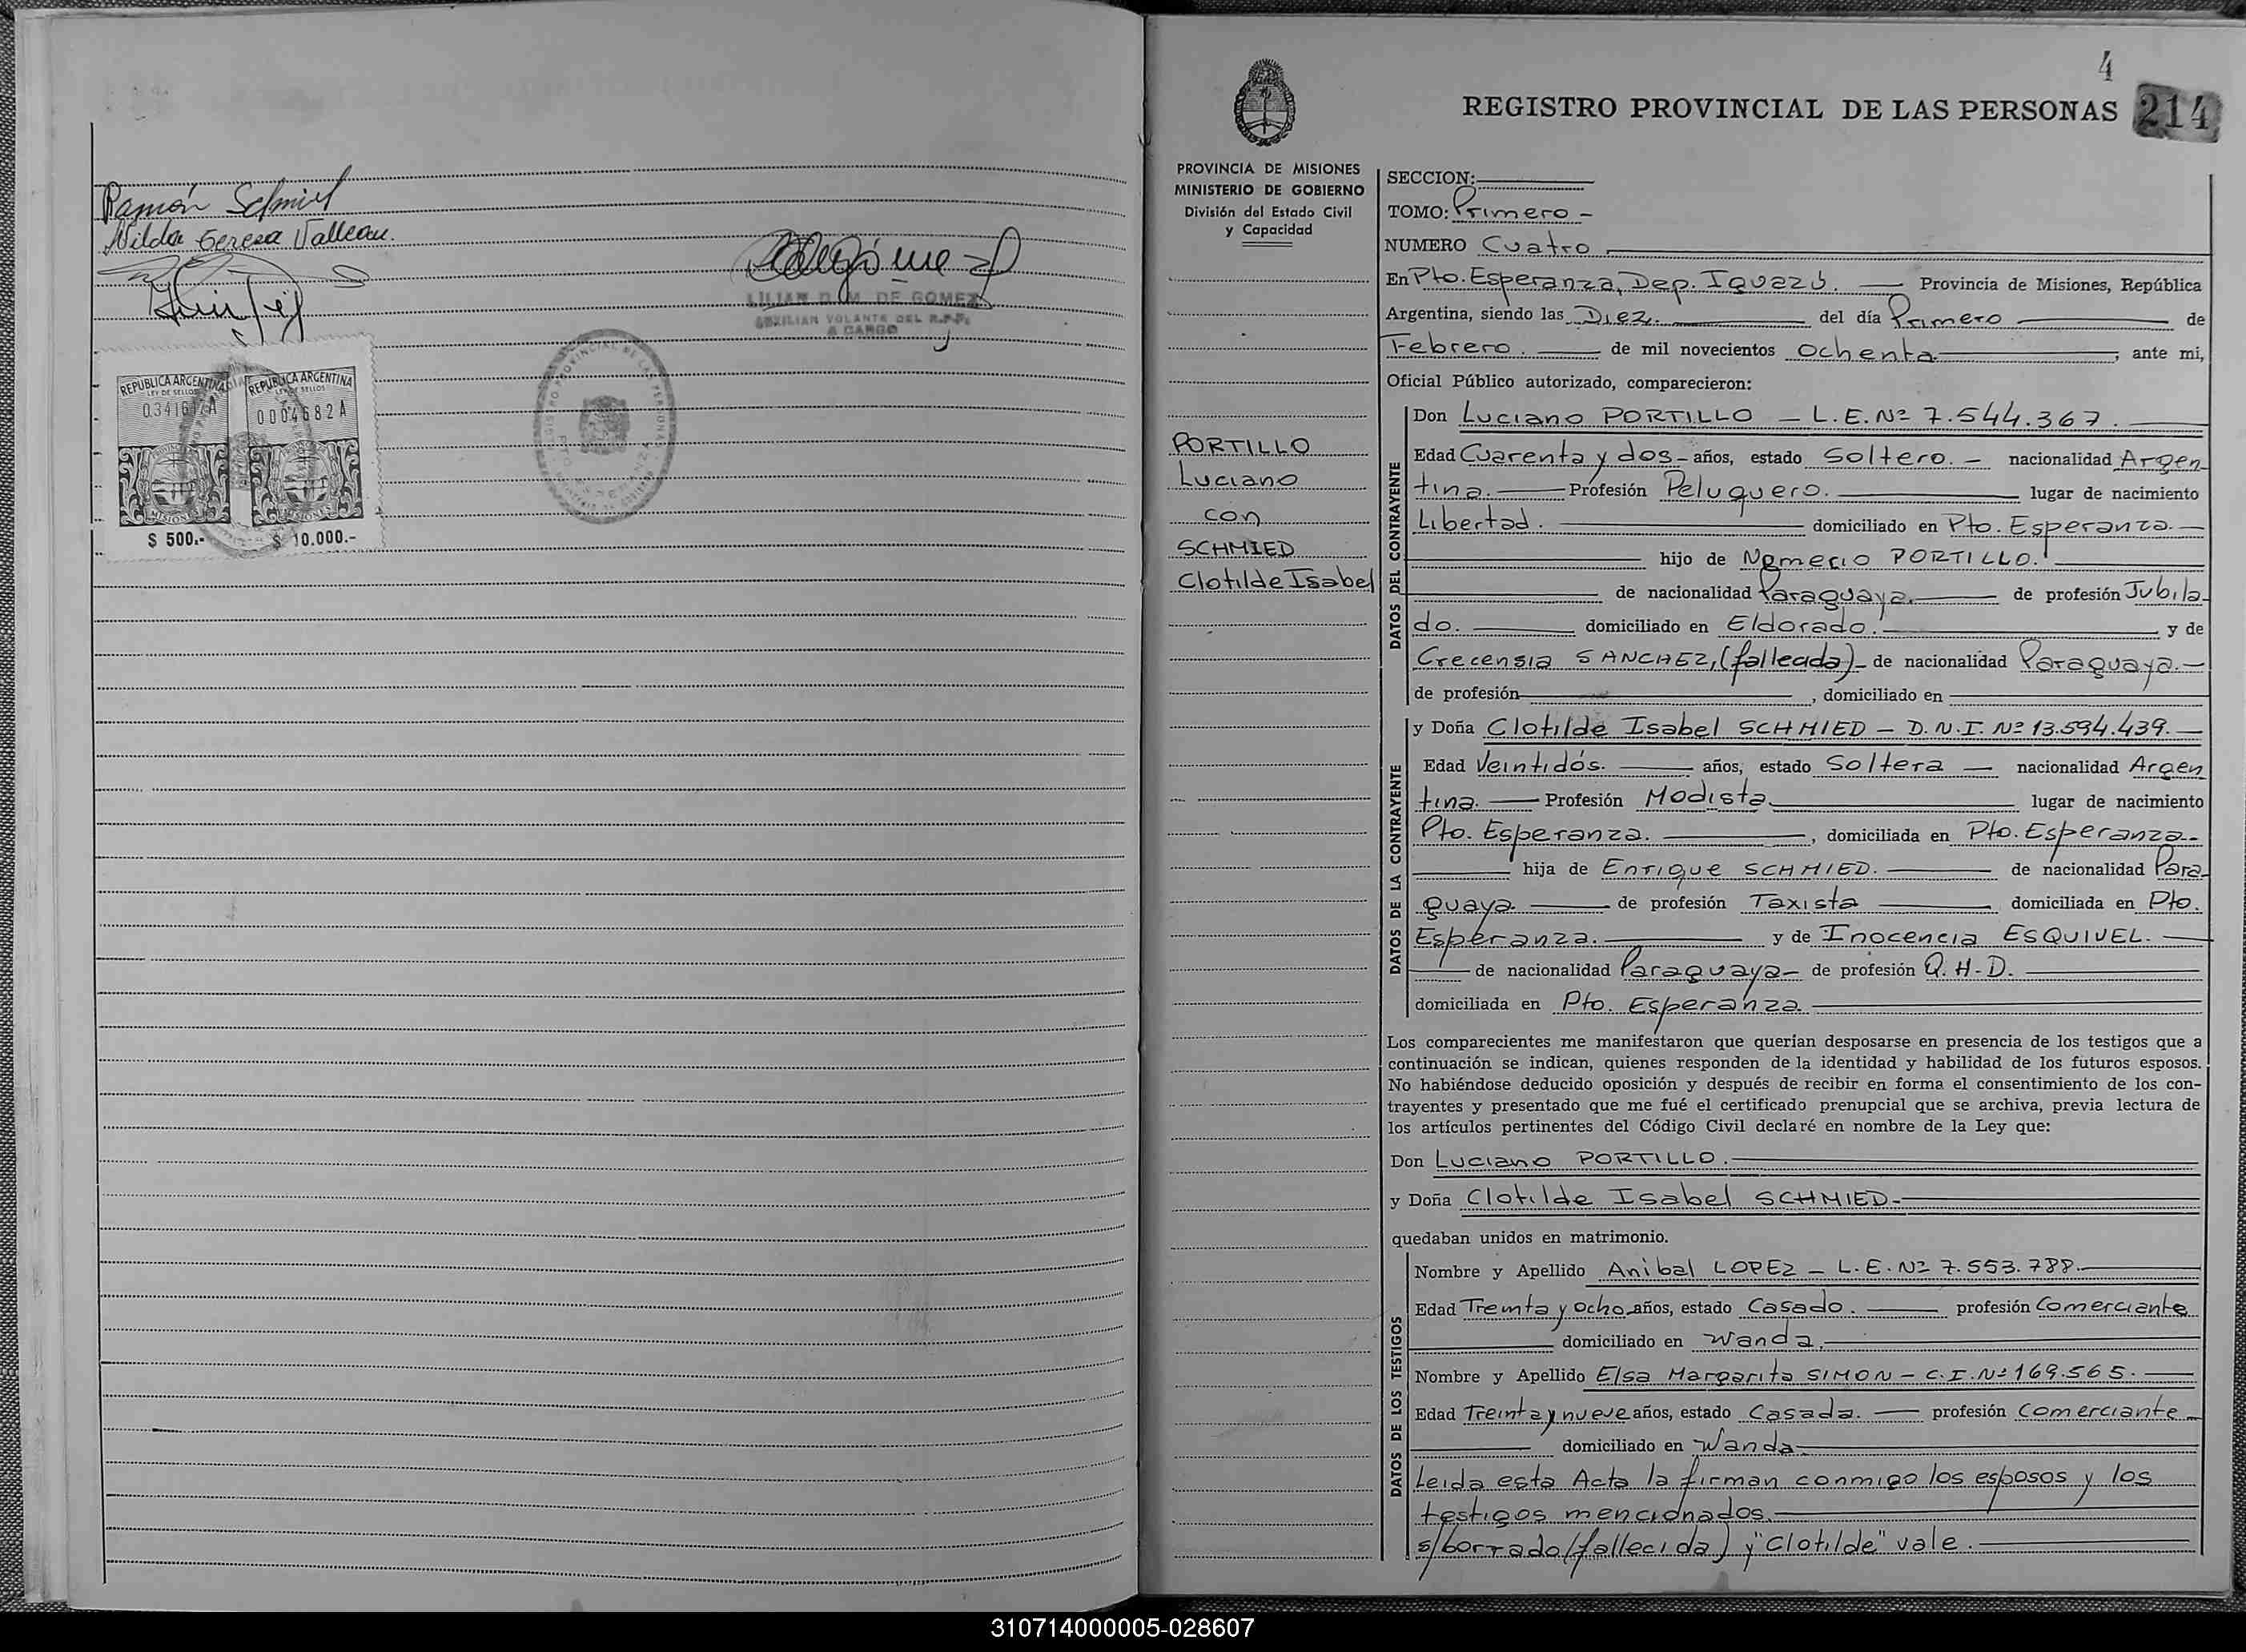 Ramón Schmied
Nilda Teresa Valleau.
LILIAN D. M. DE GOMEZ
AUXILIAR VOLANTE DEL R.P.P.
A CARGO
REGISTRO PROVINCIAL DE LAS PERSONAS
REPUBLICA ARGENTINA
LEY DE SELLOS
MISIONES
$ 500.-
REPUBLICA ARGENTINA
LEY DE SELLOS
0004682 A
MISIONES
$ 10.000.-
4
REGISTRO PROVINCIAL DE LAS PERSONAS 214
PROVINCIA DE MISIONES
MINISTERIO DE GOBIERNO
División del Estado Civil
y Capacidad
PORTILLO
Luciano
con
SCHMIED
Clotilde Isabel
SECCION:
TOMO: Primero -
NUMERO Cuatro
En Pto. Esperanza, Dep. Iguazú. Provincia de Misiones, República
Argentina, siendo las Diez. del día Primero de
Febrero. de mil novecientos ochenta ; ante mi,
Oficial Público autorizado, comparecieron:
DATOS DEL CONTRAYENTE
Don Luciano PORTILLO - L.E. Nº 7.544.367.
Edad Cuarenta y dos - años, estado Soltero. - nacionalidad Argen-
tina. Profesión Peluquero. lugar de nacimiento
Libertad. domiciliado en Pto. Esperanza.
hijo de Nemecio PORTILLO.
de nacionalidad Paraguaya. de profesión Jubila-
do. domiciliado en Eldorado. y de
Crecensia SANCHEZ, (fallecida) - de nacionalidad Paraguaya. -
de profesión , domiciliado en
DATOS DE LA CONTRAYENTE
y Doña Clotilde Isabel SCHMIED - D.N.I. Nº 13.594.439. -
Edad Veintidós. años, estado Soltera - nacionalidad Argen
tina. Profesión Modista lugar de nacimiento
Pto. Esperanza. , domiciliada en Pto. Esperanza.-
hija de Enrique SCHMIED. de nacionalidad Para-
guaya. de profesión Taxista domiciliada en Pto.
Esperanza. y de Inocencia ESQUIVEL.
de nacionalidad Paraguaya - de profesión Q.H.D.
domiciliada en Pto. Esperanza.
Los comparecientes me manifestaron que querían desposarse en presencia de los testigos que a
continuación se indican, quienes responden de la identidad y habilidad de los futuros esposos.
No habiéndose deducido oposición y después de recibir en forma el consentimiento de los con-
trayentes y presentado que me fué el certificado prenupcial que se archiva, previa lectura de
los artículos pertinentes del Código Civil declaré en nombre de la Ley que:
Don Luciano PORTILLO.
y Doña Clotilde Isabel SCHMIED.
quedaban unidos en matrimonio.
DATOS DE LOS TESTIGOS
Nombre y Apellido Anibal LOPEZ - L.E. Nº 7.553.788.
Edad Treinta y ocho años, estado Casado. profesión Comerciante
domiciliado en Wanda.
Nombre y Apellido Elsa Margarita SIMON - C.I. Nº 169.565.
Edad Treinta y nueve años, estado Casada. profesión Comerciante
domiciliado en Wanda
Leida esta Acta la firman conmigo los esposos y los
testigos mencionados.
s/borrado (fallecida) y "Clotilde" vale.
310714000005-028607